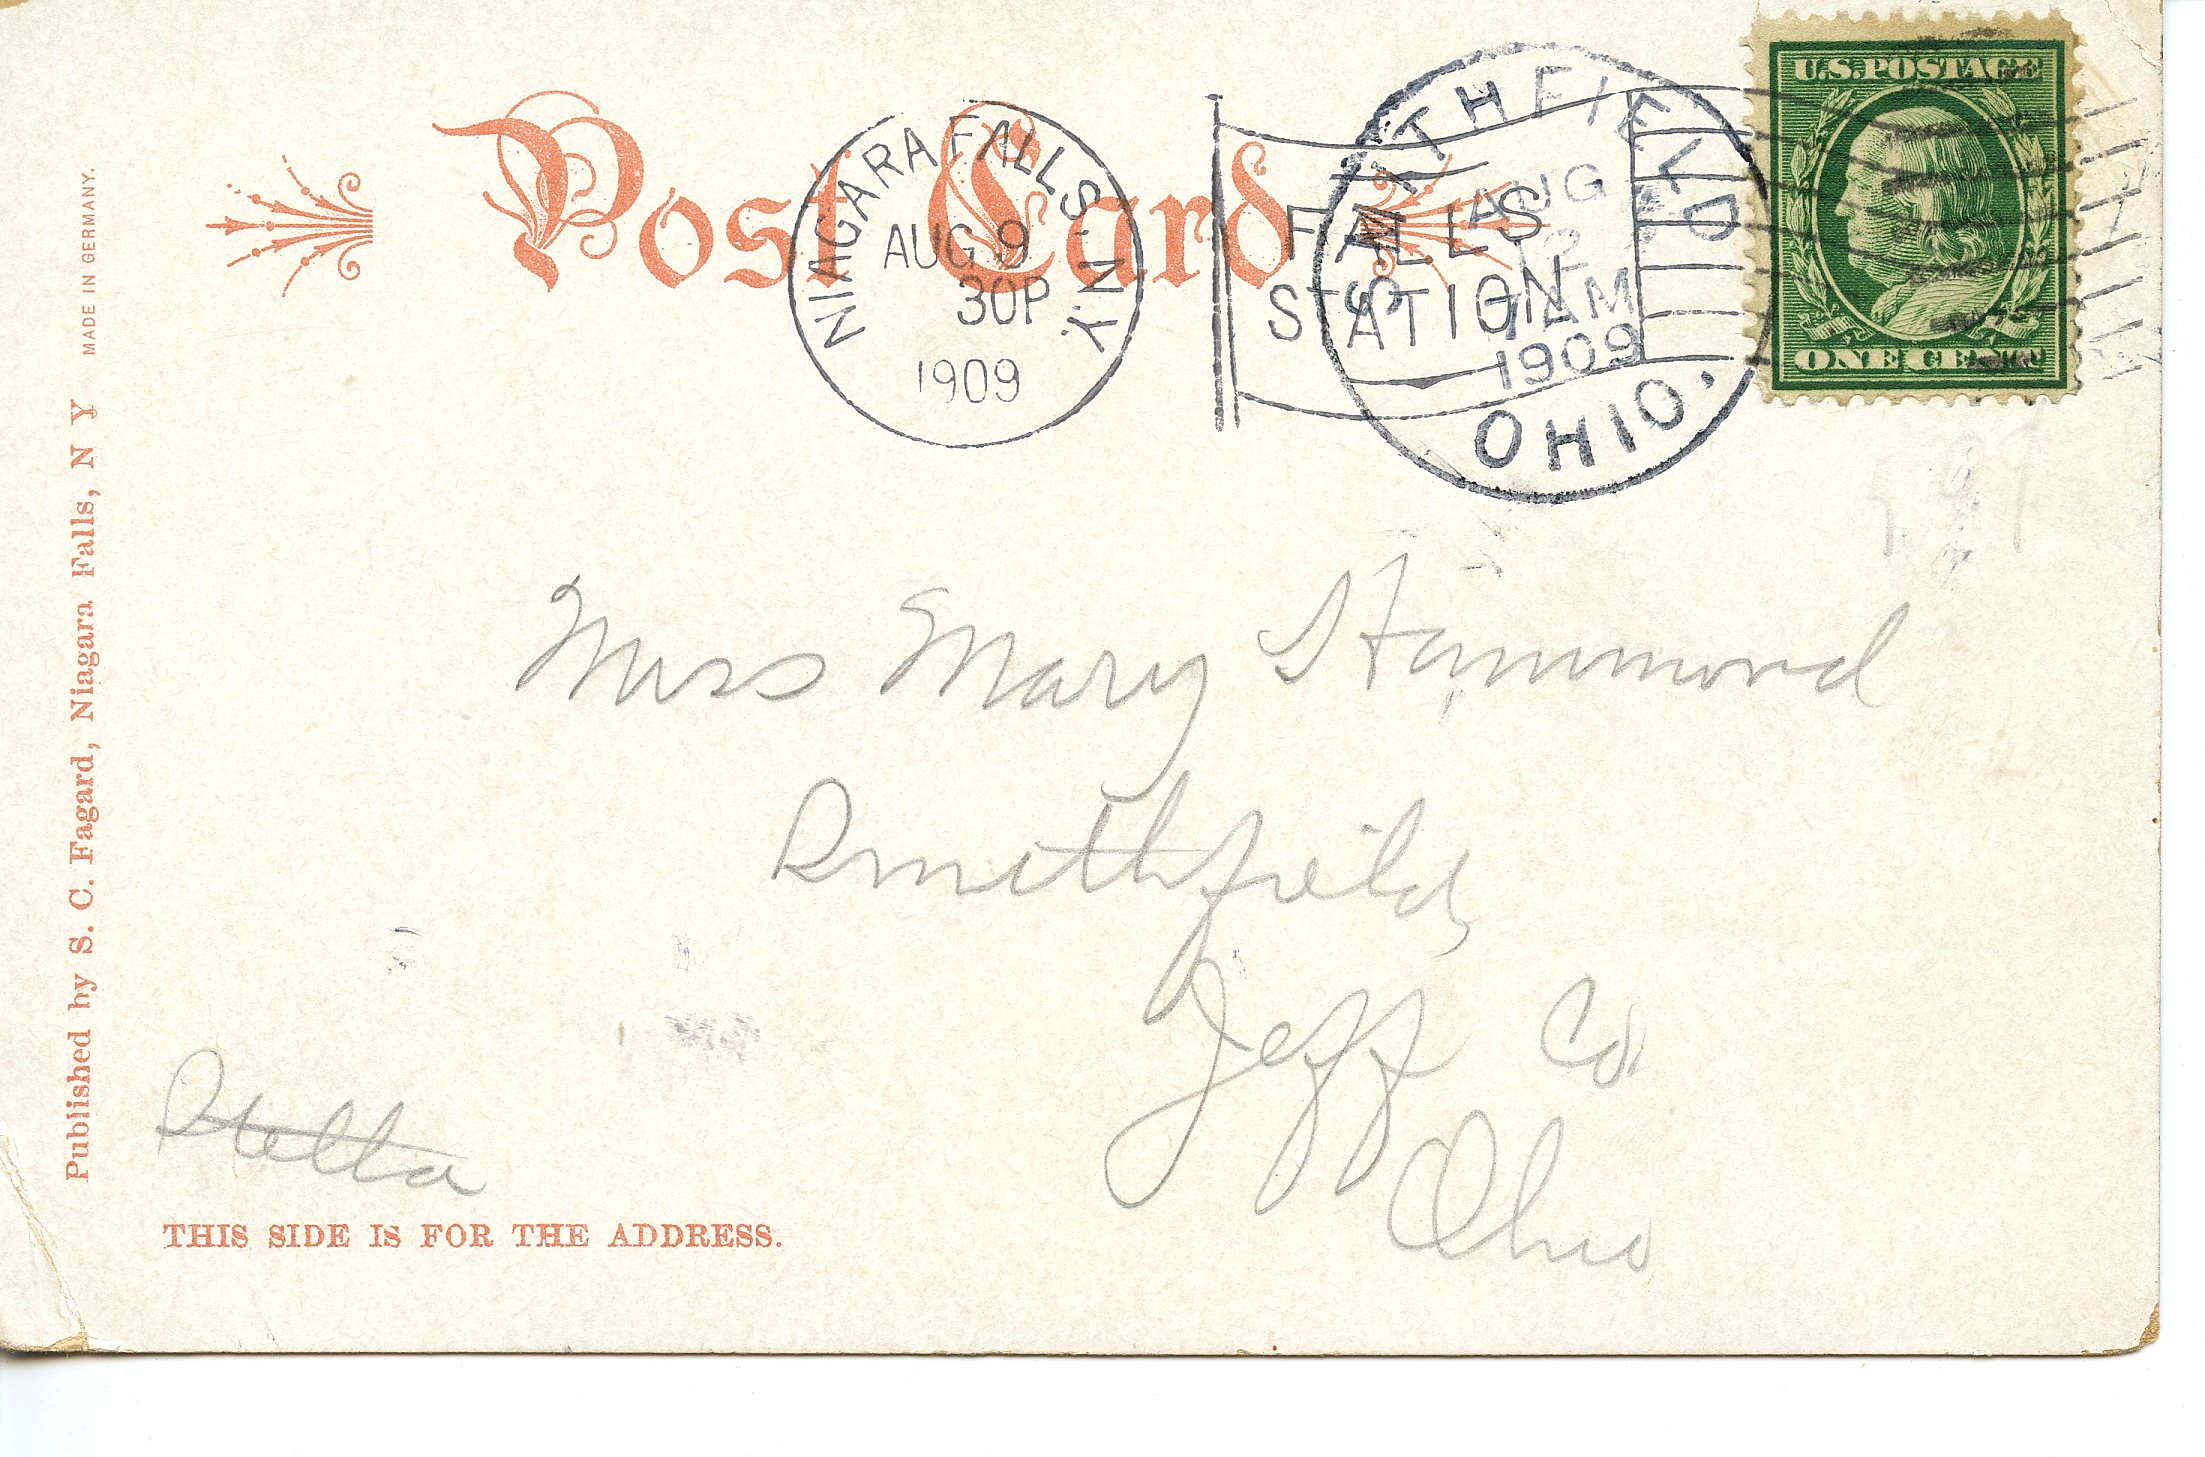 Post Card
NIAGARA FALLS. N.Y.
AUG 9
30P
1909
FALLS
STATION
SMITHFIELD
AUG
12
7 AM
1909
OHIO.
U.S.POSTAGE
ONE CENT
MADE IN GERMANY.
Published by S. C. Fagard, Niagara Falls, N Y
Miss Mary Hammond
Smithfield,
Jeff Co
Ohio
Stella
THIS SIDE IS FOR THE ADDRESS.